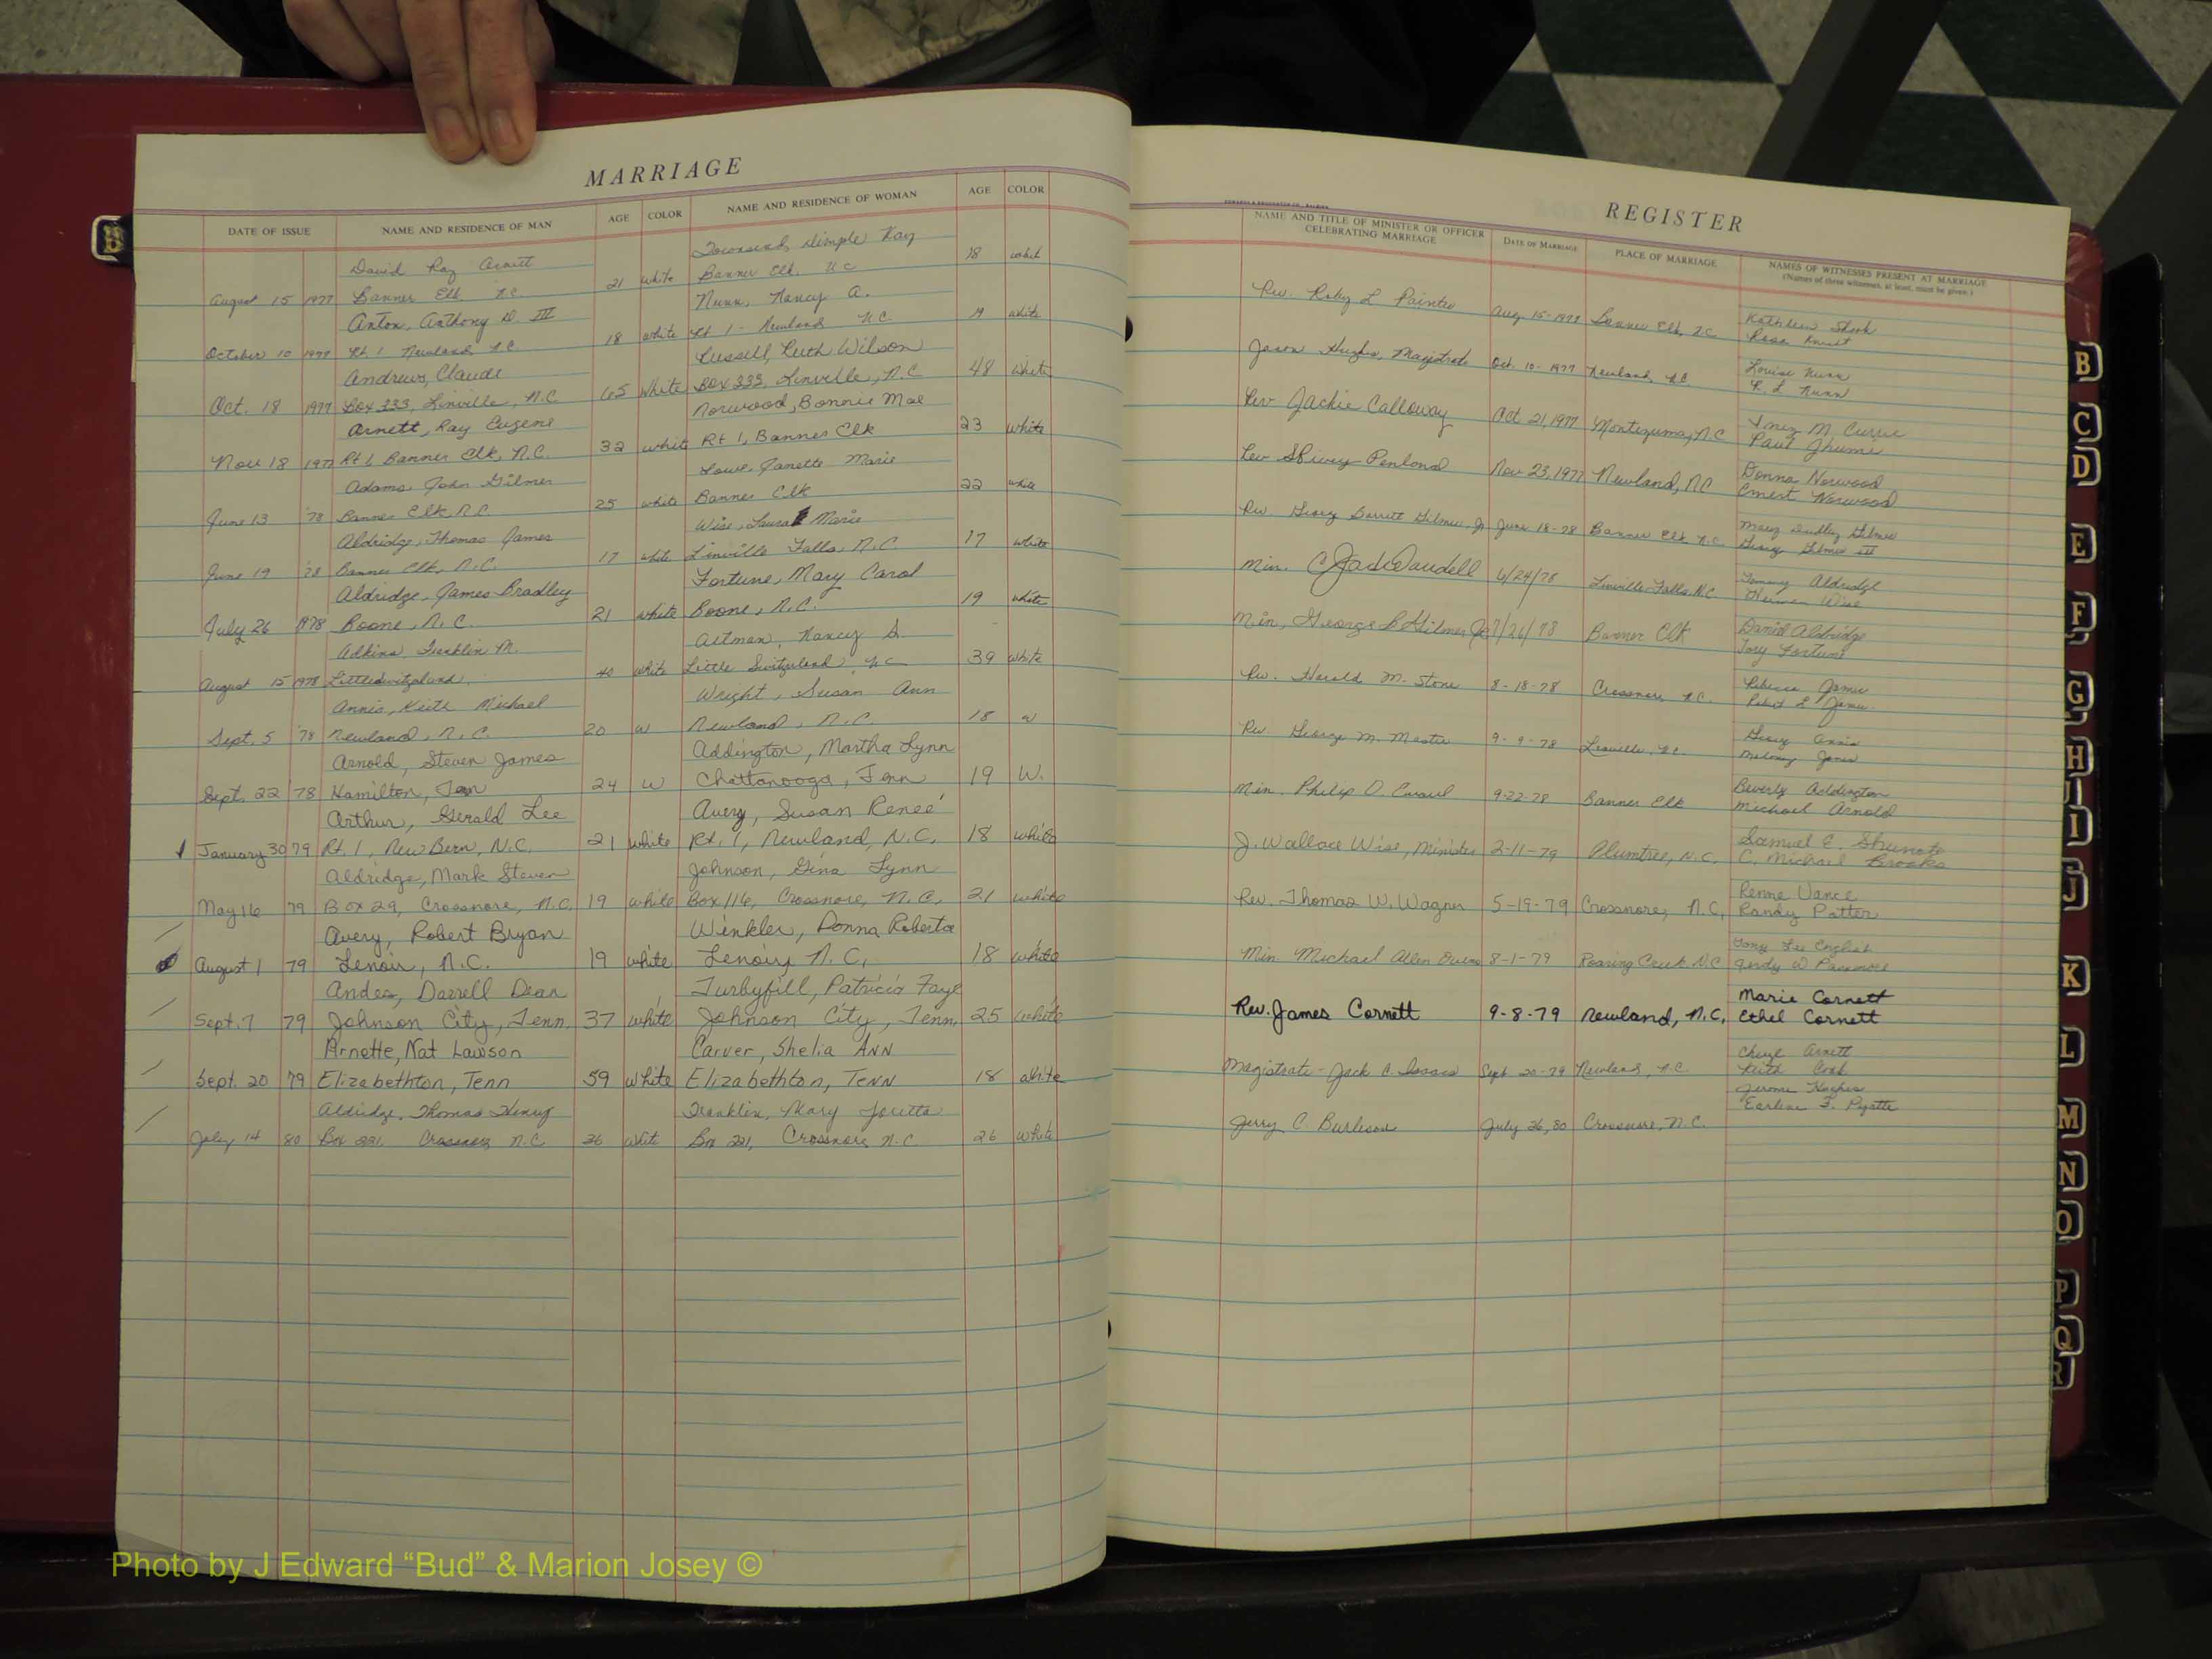 MARRIAGE
DATE OF ISSUE NAME AND RESIDENCE OF MAN AGE COLOR NAME AND RESIDENCE OF WOMAN AGE COLOR
David Ray Arnett Townsend, Dimple Kay
August 15 1977 Banner Elk N.C. 21 white Banner Elk, N C 18 white
Anton, Anthony D. III Nunn, Nancy A.
October 10 1977 Rt 1 Newland, N.C. 18 white Rt 1 - Newland N C white
Andrews, Claude Russell, Ruth Wilson
Oct. 18 1977 Box 333, Linville, N.C 65 White Box 333, Linville, N.C 48 White
Arnett, Ray Eugene Norwood, Bonnie Mae
Nov 18 1977 Rt 1, Banner Elk, N.C. 32 white Rt 1, Banner Elk 23 white
Adams John Gilmer Lowe, Janette Marie
June 13 '78 Banner Elk N.C 25 white Banner Elk 22 white
Aldridge, Thomas James Wise, Laura Marie
June 19 '78 Banner Elk, N.C. 17 white Linville Falls, N.C. 17 white
Aldridge, James Bradley Fortune, Mary Carol
July 26 1978 Boone, N.C. 21 white Boone, N.C. 19 white
Adkins Franklin M. Altman, Nancy S.
August 15 1978 Little Switzerland 40 white Little Switzerland N C 39 white
Annis, Keith Michael Wright, Susan Ann
Sept. 5 '78 Newland, N.C. 20 W Newland, N.C. 18 W
Arnold, Steven James Addington, Martha Lynn
Sept. 22 '78 Hamilton, Tenn 24 W Chattanooga, Tenn 19 W.
Arthur, Gerald Lee Avery, Susan Reneé
January 30 79 Rt. 1, New Bern, N.C. 21 white Rt. 1, Newland, N.C. 18 white
Aldridge, Mark Steven Johnson, Gina Lynn
May 16 79 Box 29, Crossnore, N.C. 19 white Box 116, Crossnore, N.C. 21 white
Avery, Robert Bryan Winkler, Donna Roberta
August 1 79 Lenoir, N.C. 19 white Lenoir, N.C. 18 white
Andes, Darrell Dean Turbyfill, Patricia Faye
Sept. 7 79 Johnson City, Tenn. 37 white Johnson City, Tenn. 25 white
Arnette, Nat Lawson Carver, Shelia Ann
Sept. 20 79 Elizabethton, Tenn 59 white Elizabethton, Tenn 18 white
Aldridge, Thomas Henry Franklin, Mary Loretta
July 14 80 Box 221, Crossnore N.C 26 white Box 221, Crossnore N.C. 26 white
REGISTER
NAME AND TITLE OF MINISTER OR OFFICER CELEBRATING MARRIAGE DATE OF MARRIAGE PLACE OF MARRIAGE NAMES OF WITNESSES PRESENT AT MARRIAGE
(Names of three witnesses, at least, must be given.)
Rev. Roby L Painter Aug 15-1977 Banner Elk, N.C Kathleen Shook
Jason Hughes, Magistrate Oct. 10-1977 Newland, N.C Louise Nunn
R. L. Nunn
Rev Jackie Calloway Oct 21, 1977 Montezuma, N.C Inez M. Currie
Paul
Rev Spivey Penland Nov 23, 1977 Newland, NC Donna Norwood
Ernest Norwood
Rev. George Barrett Gilmer Jr June 18-78 Banner Elk N.C. Mary Dudley Gilmer
George Gilmer III
Min. 6/24/78 Linville Falls, N.C. Tommy Aldridge
Herman Wise
Min. George B Gilmer Jr 7/26/78 Banner Elk Daniel Aldridge
Tony Fortune
Rev. Harold M. Stone 8-18-78 Crossnore, N.C. Rebecca James
Robert L James
Rev. George M. 9-9-78 Linville, N.C. Annis
Jones
Min. Philip D. 9-22-78 Banner Elk Beverly Addington
Michael Arnold
J. Wallace Wise, Minister 2-11-79 Plumtree, N.C. Samuel E.
C. Michael Brooks
Rev. Thomas W. Wagner 5-19-79 Crossnore, N.C. Renne Vance
Randy Potter
Min. Michael Allen Owens 8-1-79 Roaring Creek N.C Tony Lee English
W
Rev. James Cornett 9-8-79 Newland, N.C. Marie Cornett
Ethel Cornett
Magistrate - Jack C. Isaacs Sept 20-79 Newland, N.C. Cheryl Arnett
Keith Cook
Jerry C. Burleson July 26, 80 Crossnore, N.C. Jerome Hughes
Earlene F. Pyatte
B
B
C
D
E
F
G
H
I
J
K
L
M
N
O
P
Q
R
Photo by J Edward “Bud” & Marion Josey ©